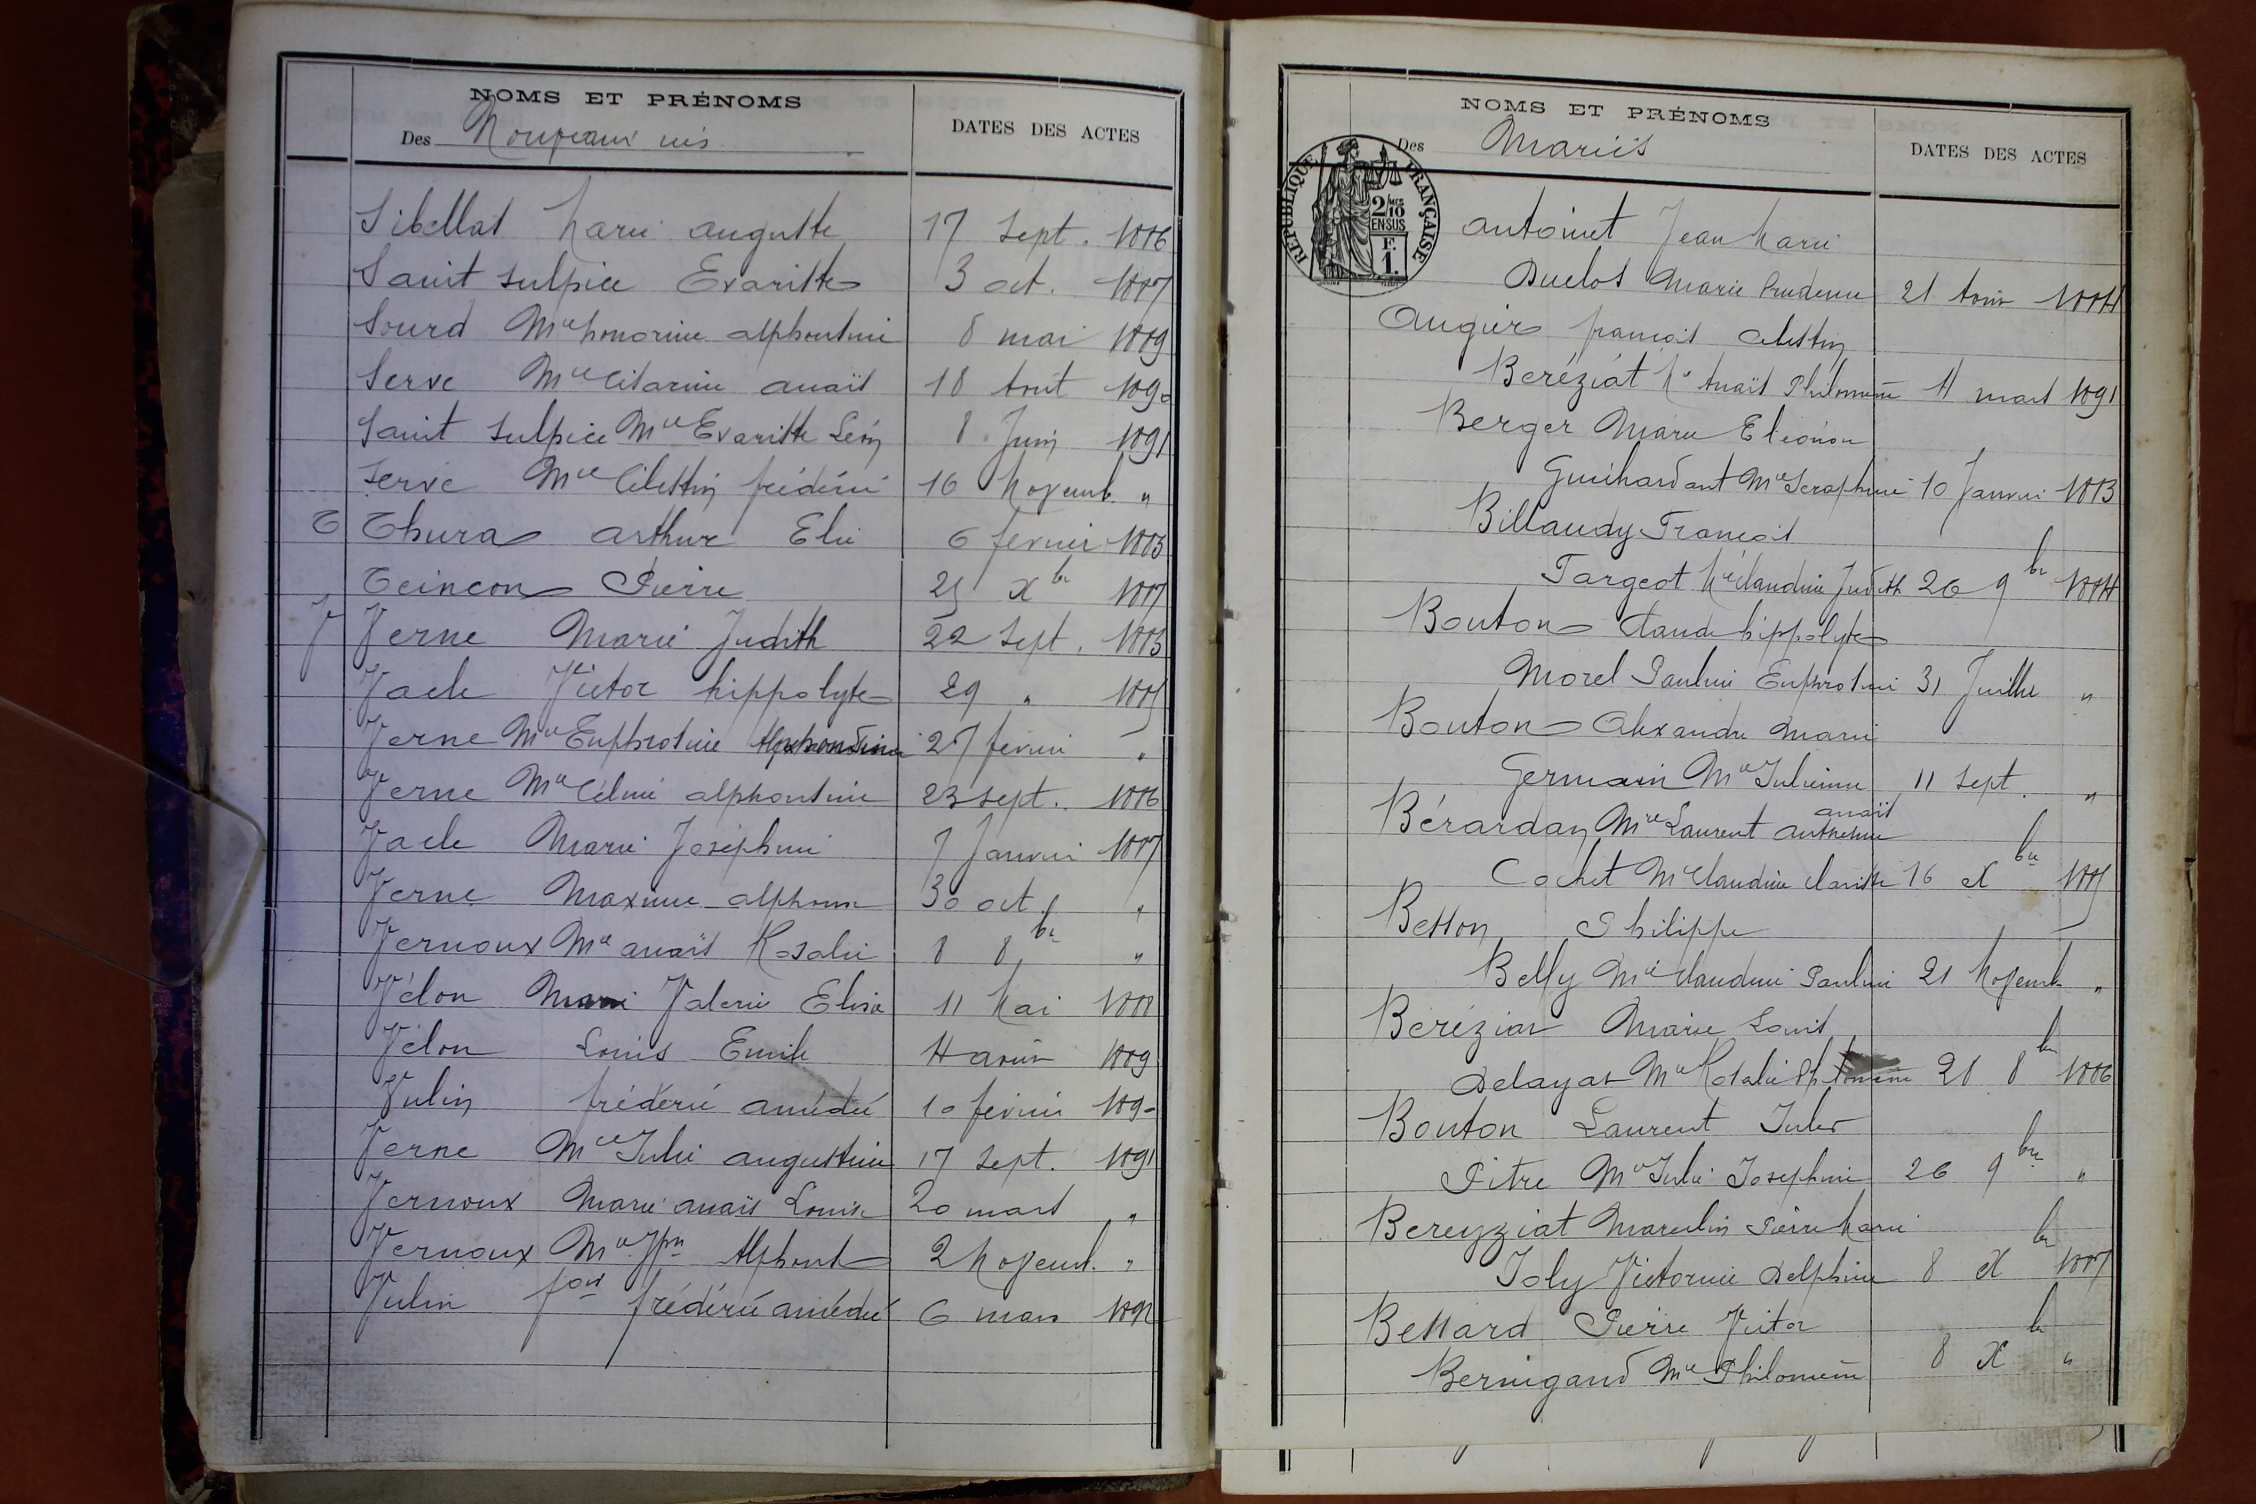 NOMS ET PRÉNOMS
Des Nouveaux nés
DATES DES ACTES
Sibellas Marie auguste 17 Sept. 1886
Saint Sulpice Evariste 3 oct. 1887
Sourd Mie honorine alphonsine 8 mai 1889
Serve Mie Césarine anaïs 18 Aout 1890
Saint Sulpice Mie Evariste Léon 8 Juin 1891
Serve Mie Célestin frédéric 16 Novemb. "
T Thura arthur Elie 6 fevrier 1883
Teincon Pierre Xbre 1887
V Verne Marie Judith 22 Sept. 1883
Vacle Victor hippolyte 29 " 1885
Verne Mie Euphrosine Alphonsine 27 fevrier "
Verne Mie Célinie alphonsine 23 sept. 1886
Vacle Marie Joséphine 7 Janvier 1887
Verne Maxime alphonse 30 oct. "
Vernoux Mie anaïs Rosalie 8 8bre "
Vélon Marie Valerie Elisa 11 Mai 1888
Vélon Louis Emile 4 aout 1889
Vulin frédéric amédée 10 fevrier 1890
Verne Mie Julie augustine 17 Sept. 1891
Vernoux Marie anaïs Louise 20 mars "
Vernoux Mie Jph Alphonse 2 Novemb. "
Vulin fois frédéric amédée 6 mars 1892
NOMS ET PRÉNOMS
Des Mariés
DATES DES ACTES
RÉPUBLIQUE FRANÇAISE
2/10 MES
EN SUS
F.
1.
antoinet Jean Marie
Duclos Marie Prudence 21 Aout 1884
Augier françois Celestin
Beréziat Mie Anaïs Philomène 4 mars 1891
Berger Marie Eléonor
Guichardant Mie Seraphine 10 Janvier 1883
Billaudy François
Targeot Mie Claudine Judith 26 9bre 1884
Bouton Claude hippolyte
Morel Pauline Euphrosine 31 Juillet "
Bouton Alexandre Marie
Germain Mie Julienne 11 Sept. "
Bérardan Mie Laurent anthelme
anaïs
Cochet Mie Claudine Clarisse 16 Xbre 1885
Besson Philippe
Belly Mie Claudine Pauline 21 Novemb. "
Beréziat Marie Louis
Delayat Mie Rosalie Philomène 21 8bre 1886
Bouton Laurent Jules
Pitre Mie Julie Josephine 26 9bre "
Bereyziat Marcelin Pierre Marie
Joly Victorine Delphine 8 Xbre 1887
Bessard Pierre Victor
Bernigaud Mie Philomène 8 Xbre "